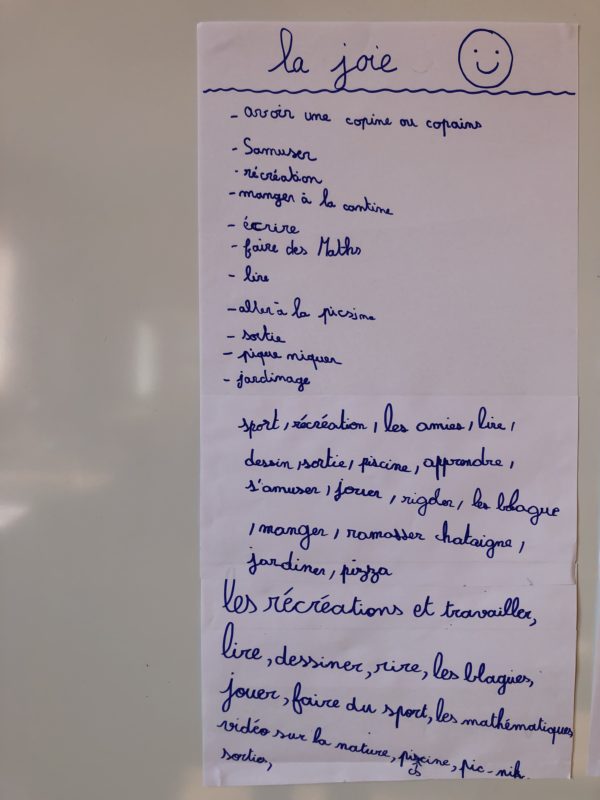 la joie
- avoir une copine ou copains
- Samuser
- récréation
- manger à la cantine
- écrire
- faire des Maths
- lire
- aller à la picsine
- sortie
- pique niquer
- jardinage
sport, récréation, les amies, lire,
dessin, sortie, piscine, apprendre,
s'amuser, jouer, rigoler, les blague
, manger, ramasser chataigne,
jardiner, pizza
les récréations et travailler,
lire, dessiner, rire, les blagues,
jouer, faire du sport, les mathématiques
vidéo sur la nature, piscine, pic-nik
sortie,